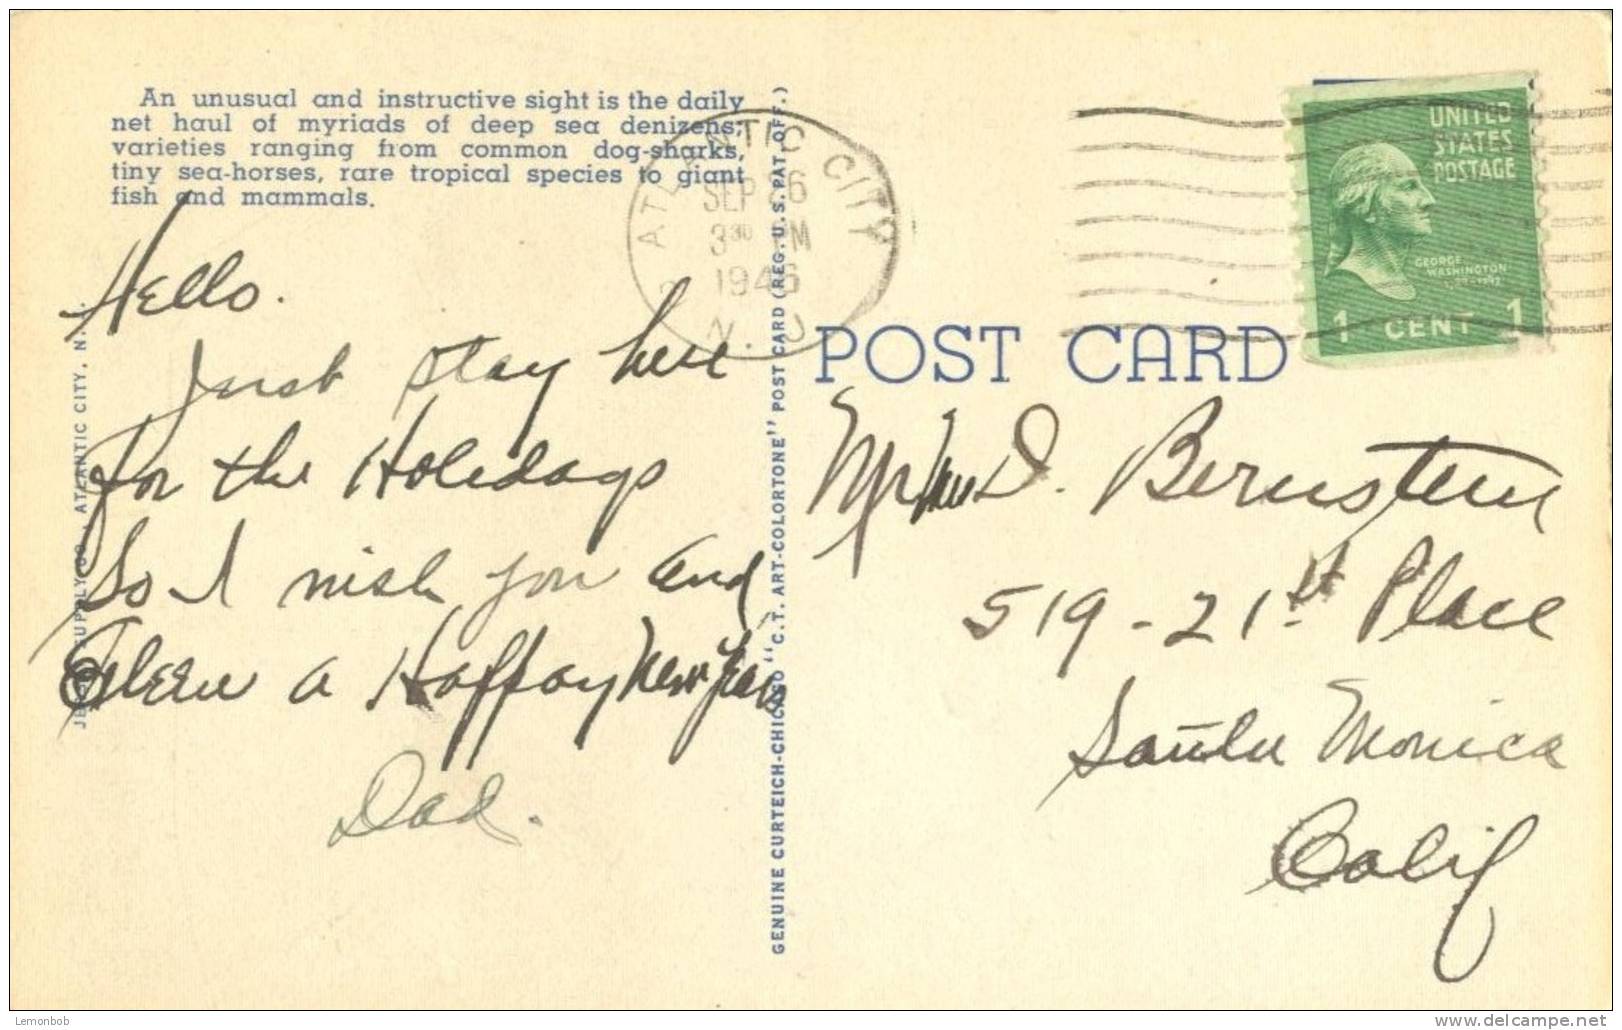 An unusual and instructive sight is the daily
net haul of myriads of deep sea denizens;
varieties ranging from common dog-sharks,
tiny sea-horses, rare tropical species to giant
fish and mammals.
Hello.
Just stay here
for the Holedays
So I wish you and
Eileen a Happy New Year
Dad.
ATLANTIC CITY
SEP 26
3 30 PM
1946
N. J.
GENUINE CURTEICH-CHICAGO "C.T. ART-COLORTONE" POST CARD (REG. U.S. PAT. OFF.)
SUPPLY CO., ATLANTIC CITY, N.
UNITED
STATES
POSTAGE
GEORGE
WASHINGTON
1 CENT 1
POST CARD
D. Bernstein
519-21st Place
Santa Monica
Calif
Lemonbob
www.delcampe.net